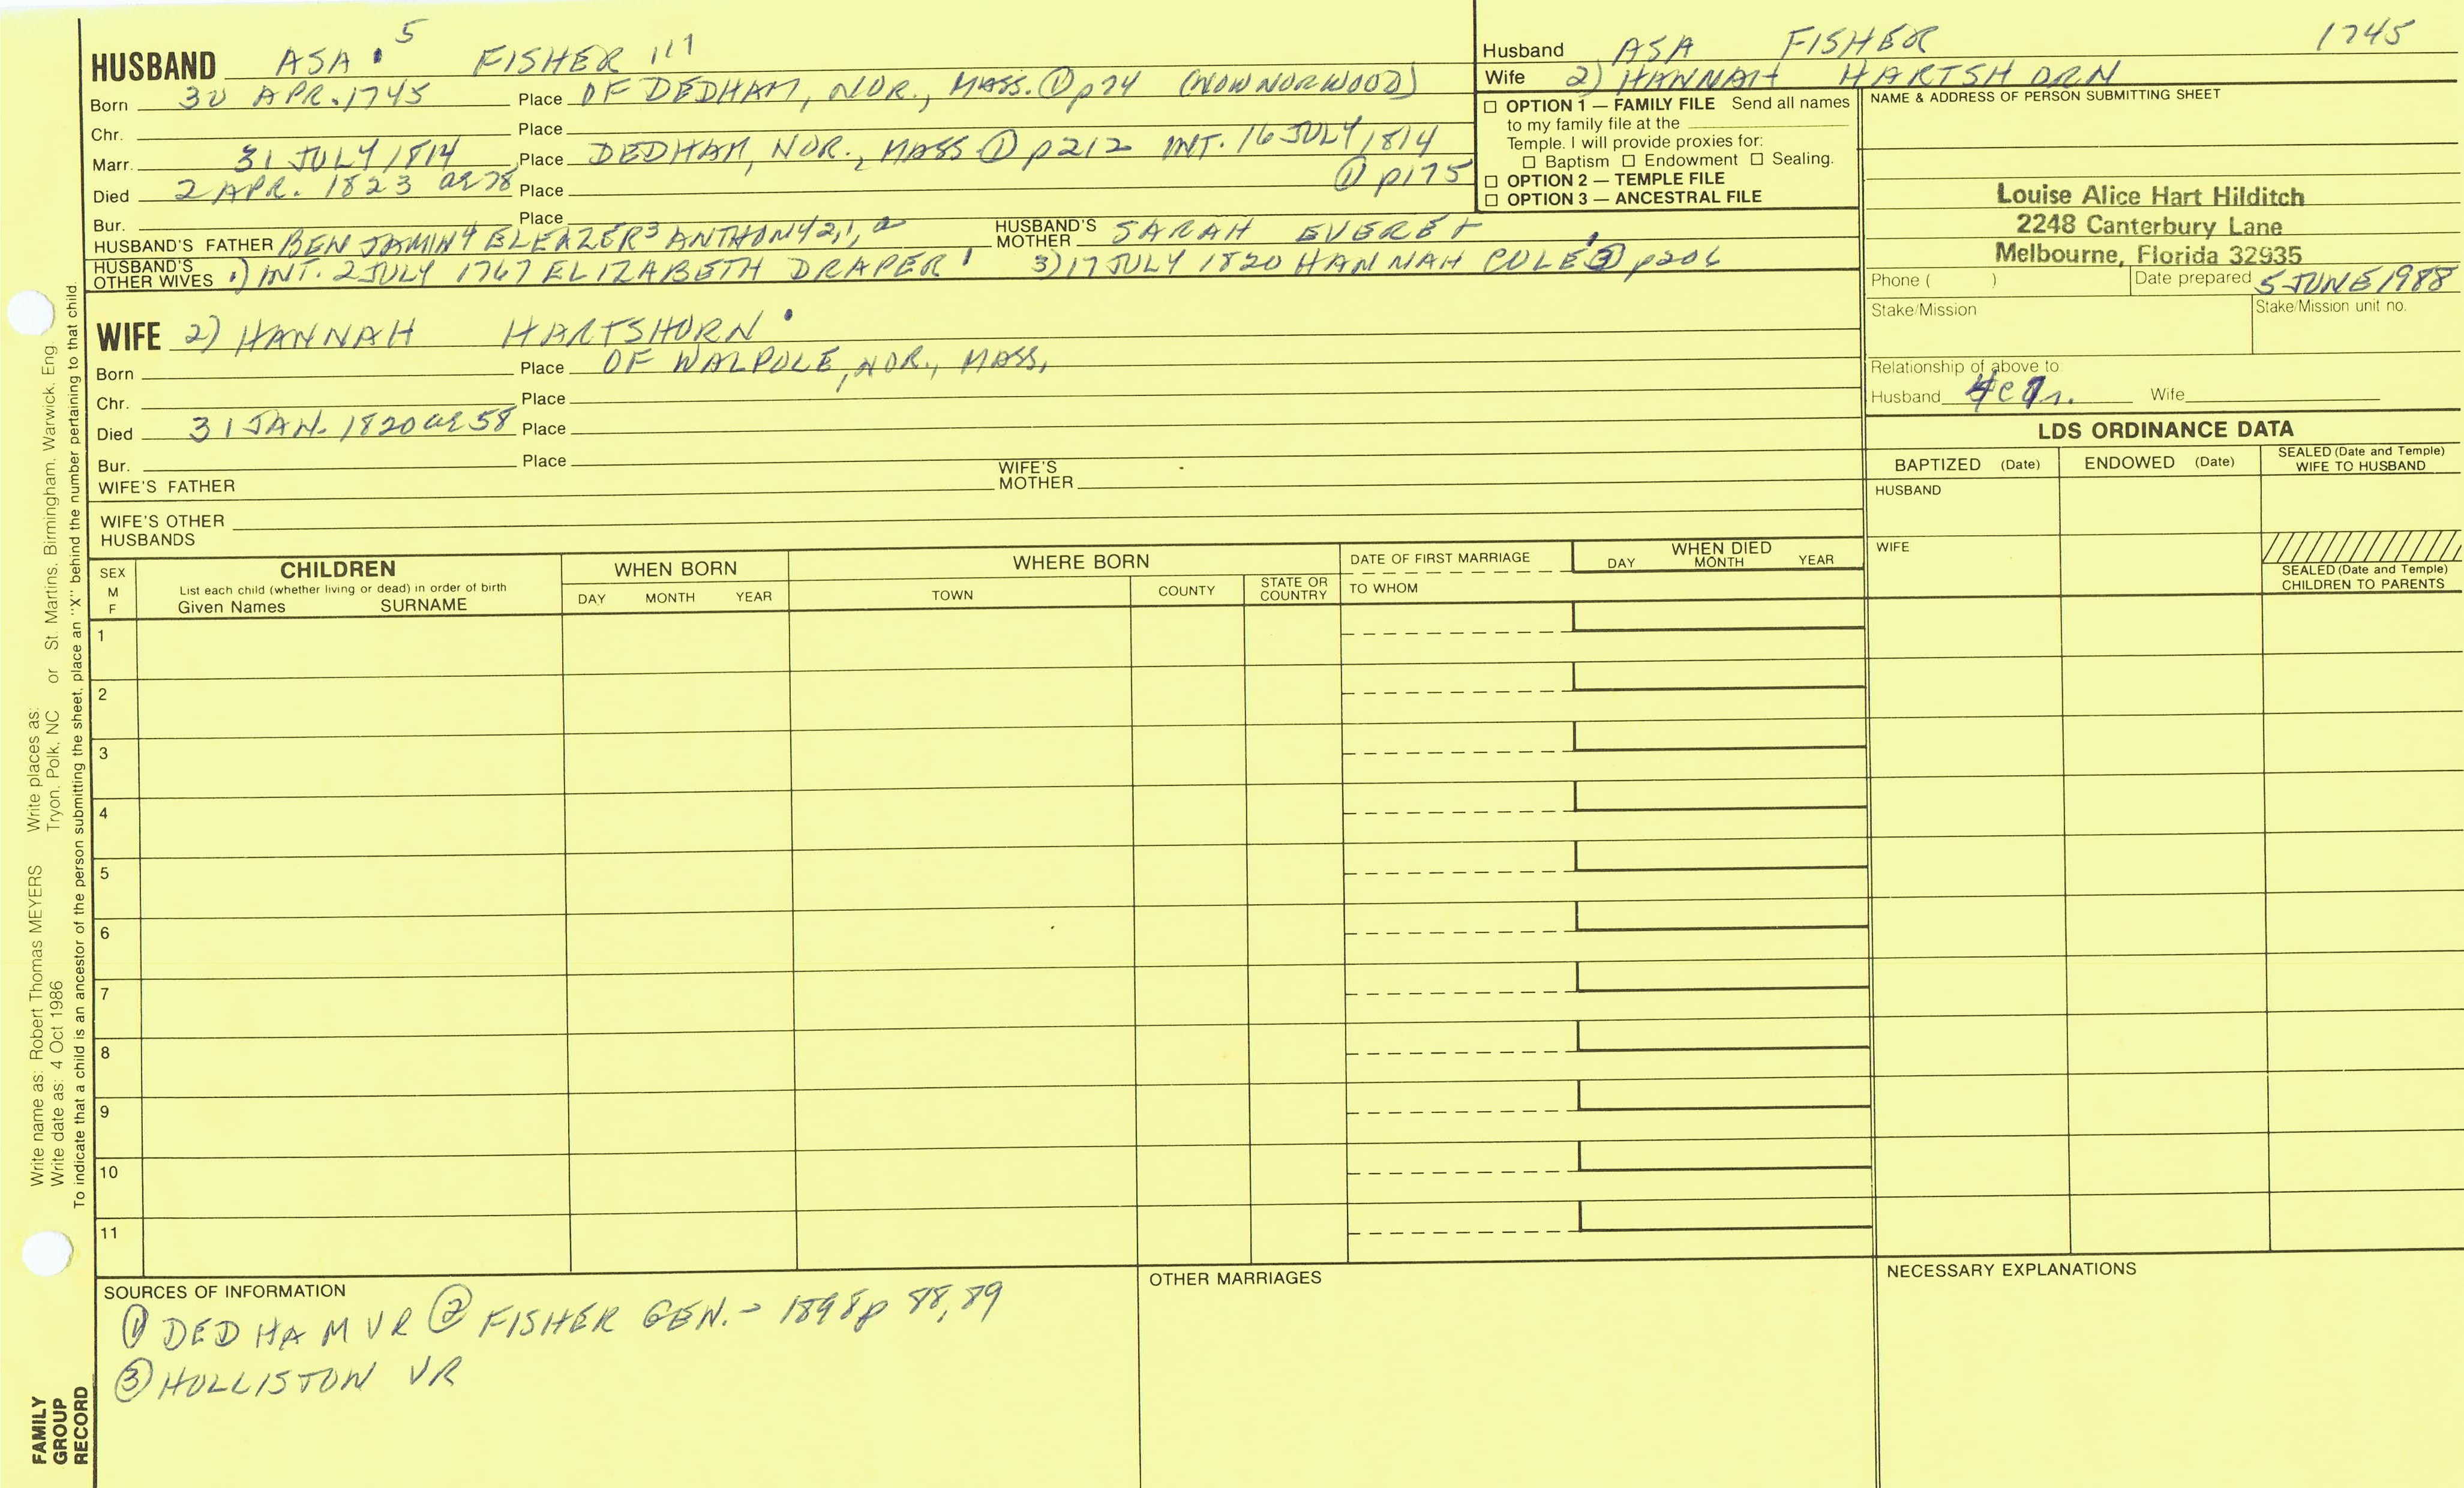 HUSBAND ASA 5 FISHER 111
Born 30 APR. 1745 Place OF DEDHAM, NOR., MASS. ① p74 (NOW NORWOOD)
Chr. Place
Marr. 31 JULY 1814 Place DEDHAM, NOR., MASS ① p212 INT. 16 JULY 1814
① p175
Died 2 APR. 1823 ae 78 Place
Bur. Place
HUSBAND'S FATHER BENJAMIN4 ELEAZER3 ANTHONY2,1, HUSBAND'S MOTHER SARAH EVERET
HUSBAND'S OTHER WIVES 1) INT. 2 JULY 1767 ELIZABETH DRAPER 3) 17 JULY 1820 HANNAH COLE ③ p206
WIFE 2) HANNAH HARTSHORN
Born Place OF WALPOLE, NOR., MASS.
Chr. Place
Died 31 JAN. 1820 ae 58 Place
Bur. Place
WIFE'S FATHER WIFE'S MOTHER
WIFE'S OTHER HUSBANDS
Husband ASA FISHER 1745
Wife 2) HANNAH HARTSHORN
☐ OPTION 1 — FAMILY FILE Send all names
to my family file at the
Temple. I will provide proxies for:
☐ Baptism ☐ Endowment ☐ Sealing.
☐ OPTION 2 — TEMPLE FILE
☐ OPTION 3 — ANCESTRAL FILE
NAME & ADDRESS OF PERSON SUBMITTING SHEET
Louise Alice Hart Hilditch
2248 Canterbury Lane
Melbourne, Florida 32935
Phone ( ) Date prepared 5 JUNE 1988
Stake/Mission Stake/Mission unit no.
Relationship of above to
Husband Wife
LDS ORDINANCE DATA
BAPTIZED (Date) ENDOWED (Date) SEALED (Date and Temple) WIFE TO HUSBAND
HUSBAND
WIFE
SEALED (Date and Temple)
CHILDREN TO PARENTS
SEX M F
CHILDREN
List each child (whether living or dead) in order of birth
Given Names SURNAME
WHEN BORN
DAY MONTH YEAR
WHERE BORN
TOWN COUNTY STATE OR COUNTRY
DATE OF FIRST MARRIAGE
TO WHOM
WHEN DIED
DAY MONTH YEAR
1
2
3
4
5
6
7
8
9
10
11
SOURCES OF INFORMATION
① DEDHAM VR ② FISHER GEN. - 1898 p 88, 89
③ HOLLISTON VR
OTHER MARRIAGES
NECESSARY EXPLANATIONS
FAMILY
GROUP
RECORD
Write name as: Robert Thomas MEYERS Write places as:
Write date as: 4 Oct 1986 Tryon, Polk, NC or St. Martins, Birmingham, Warwick, Eng
To indicate that a child is an ancestor of the person submitting the sheet, place an "X" behind the number pertaining to that child.